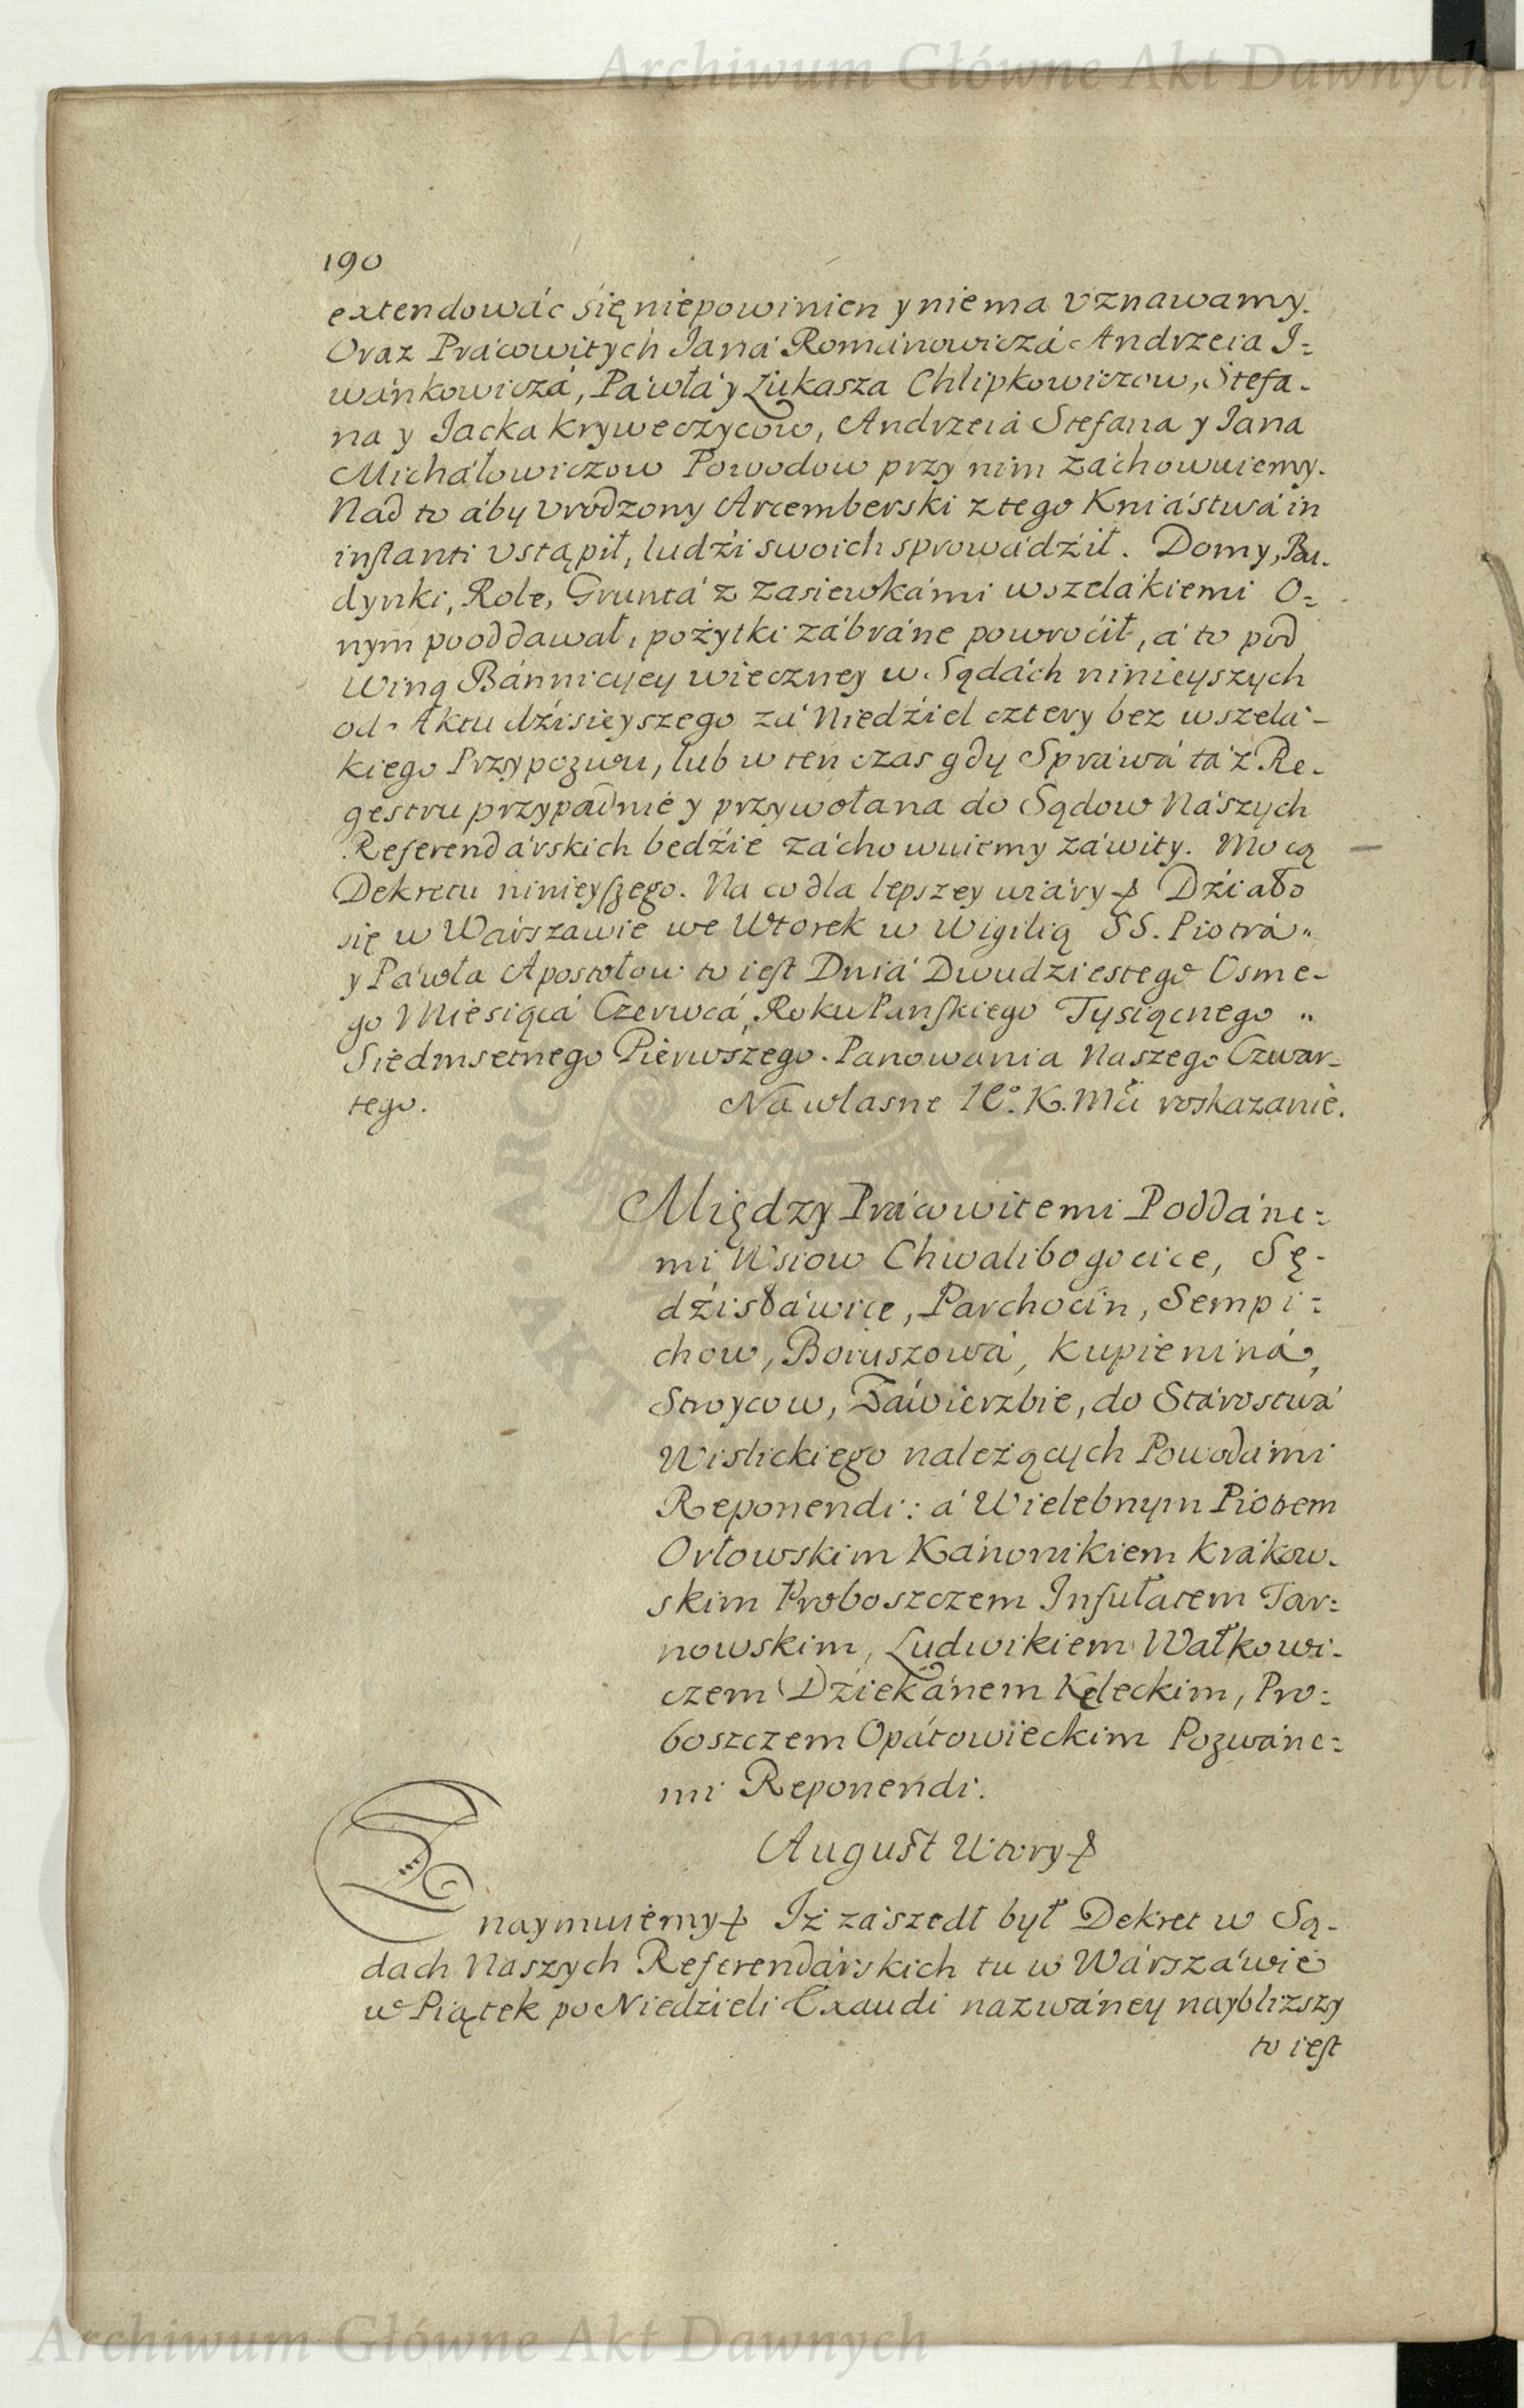 Archiwum Główne Akt Dawnych
190
extendowáć się niepowinien y niema vznawamy.
Oraz Pracowitych Jana Romanowiczá Andrzeia J=
wánkowiczá, Páwłá y Łukasza Chlipkowiczow, Stefa-
na y Jacka Kryweczyców, Andrzeiá Stefana y Jana
Micháłowiczow Powodow przy nim záchowuiemy.
Nád to áby vrodzony Arcemberski z tego Kniástwá in
instanti vstąpił, ludźi swoich sprowádźił. Domy, Bu-
dynki, Role, Gruntá z zasiewkámi wszelákiemi O=
nym pooddawał, pożytki zábráne powroćił, á to pod
Winą Bánnicyey wieczney w Sądách ninieyszych
od Aktu dźisieyszego zá Niedźiel cztery bez wszelá-
kiego Przypozwu, lub w ten czas gdy Spráwá tá z Re-
gestru przypadnie y przywołana do Sądow Nászych
Referendárskich będźie záchowuiemy záwity. Mocą
Dekretu ninieyszego. Na co dla lepszey wiáry Dźiało
się w Wárszawie we Wtorek w Wigilią SS. Piotrá
y Páwła Apostołow to iest Dniá Dwudziestego Osme-
go Miesiącá Czerwcá, Roku Panskiego Tysiącnego
Siedmsetnego Pierwszego. Panowania Naszego Czwar-
tego. Na własne Ie°. K. Mći roskazanie.
Między Prácowitemi Poddáne=
mi Wsiow Chwalibogocice, Sę-
dźisławice, Parchocin, Sempi=
chow, Boruszowá, Kupieniná,
Stroycow, Záwierzbie, do Stárostwá
Wislickiego należących Powodámi
Reponendi: á Wielebnym Piotrem
Orłowskim Kánonikiem Krákow-
skim Proboszczem Infułatem Tar=
nowskim, Ludwikiem Wałkowi-
czem Dziekánem Keleckim, Pro=
boszczem Opátowieckim Pozwáne=
mi Reponendi.
August Wtory
Znaymuiemy Iż zászedł był Dekret w Są-
dach Naszych Referendárskich tu w Wárszáwie
w Piątek po Niedzieli Exaudi nazwáney naybliższy
to iest
Archiwum Główne Akt Dawnych